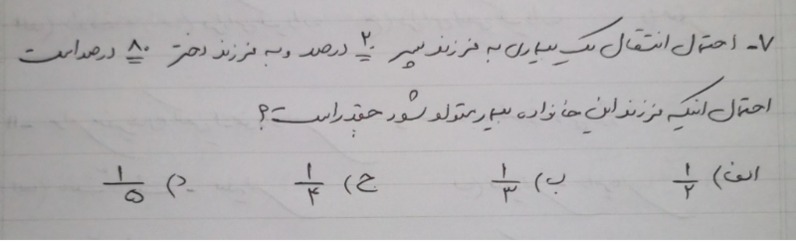 ۷- احتمال انتقال یک بیماری به فرزند پسر ۲۰ درصد و به فرزند دختر ۸۰ درصد است
احتمال اینکه فرزند این خانواده بیمار متولد شود چقدر است؟
الف) ۱/۲ ب) ۱/۳ ج) ۱/۴ د) ۱/۵